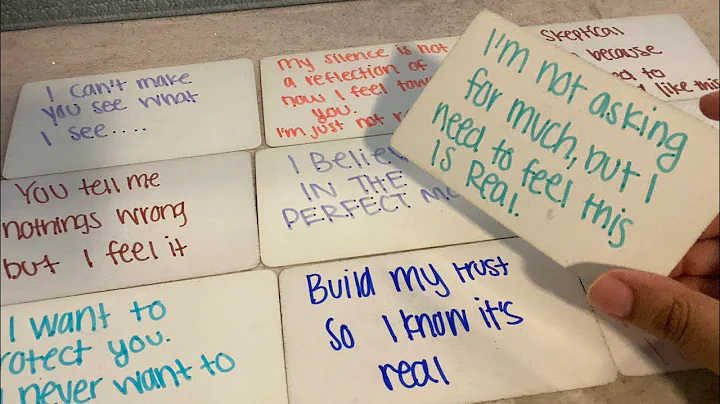 I can't make
you see what
I see....
My silence is not
a reflection of
how I feel
you.
I'm just not
Skeptical
because
to
like this
I'm not asking
for much, but I
need to feel this
Is Real.
You tell me
nothings wrong
but I feel it
I Believe
IN THE
PERFECT
Build my trust
So I know it's
real
I want to
protect you.
never want to